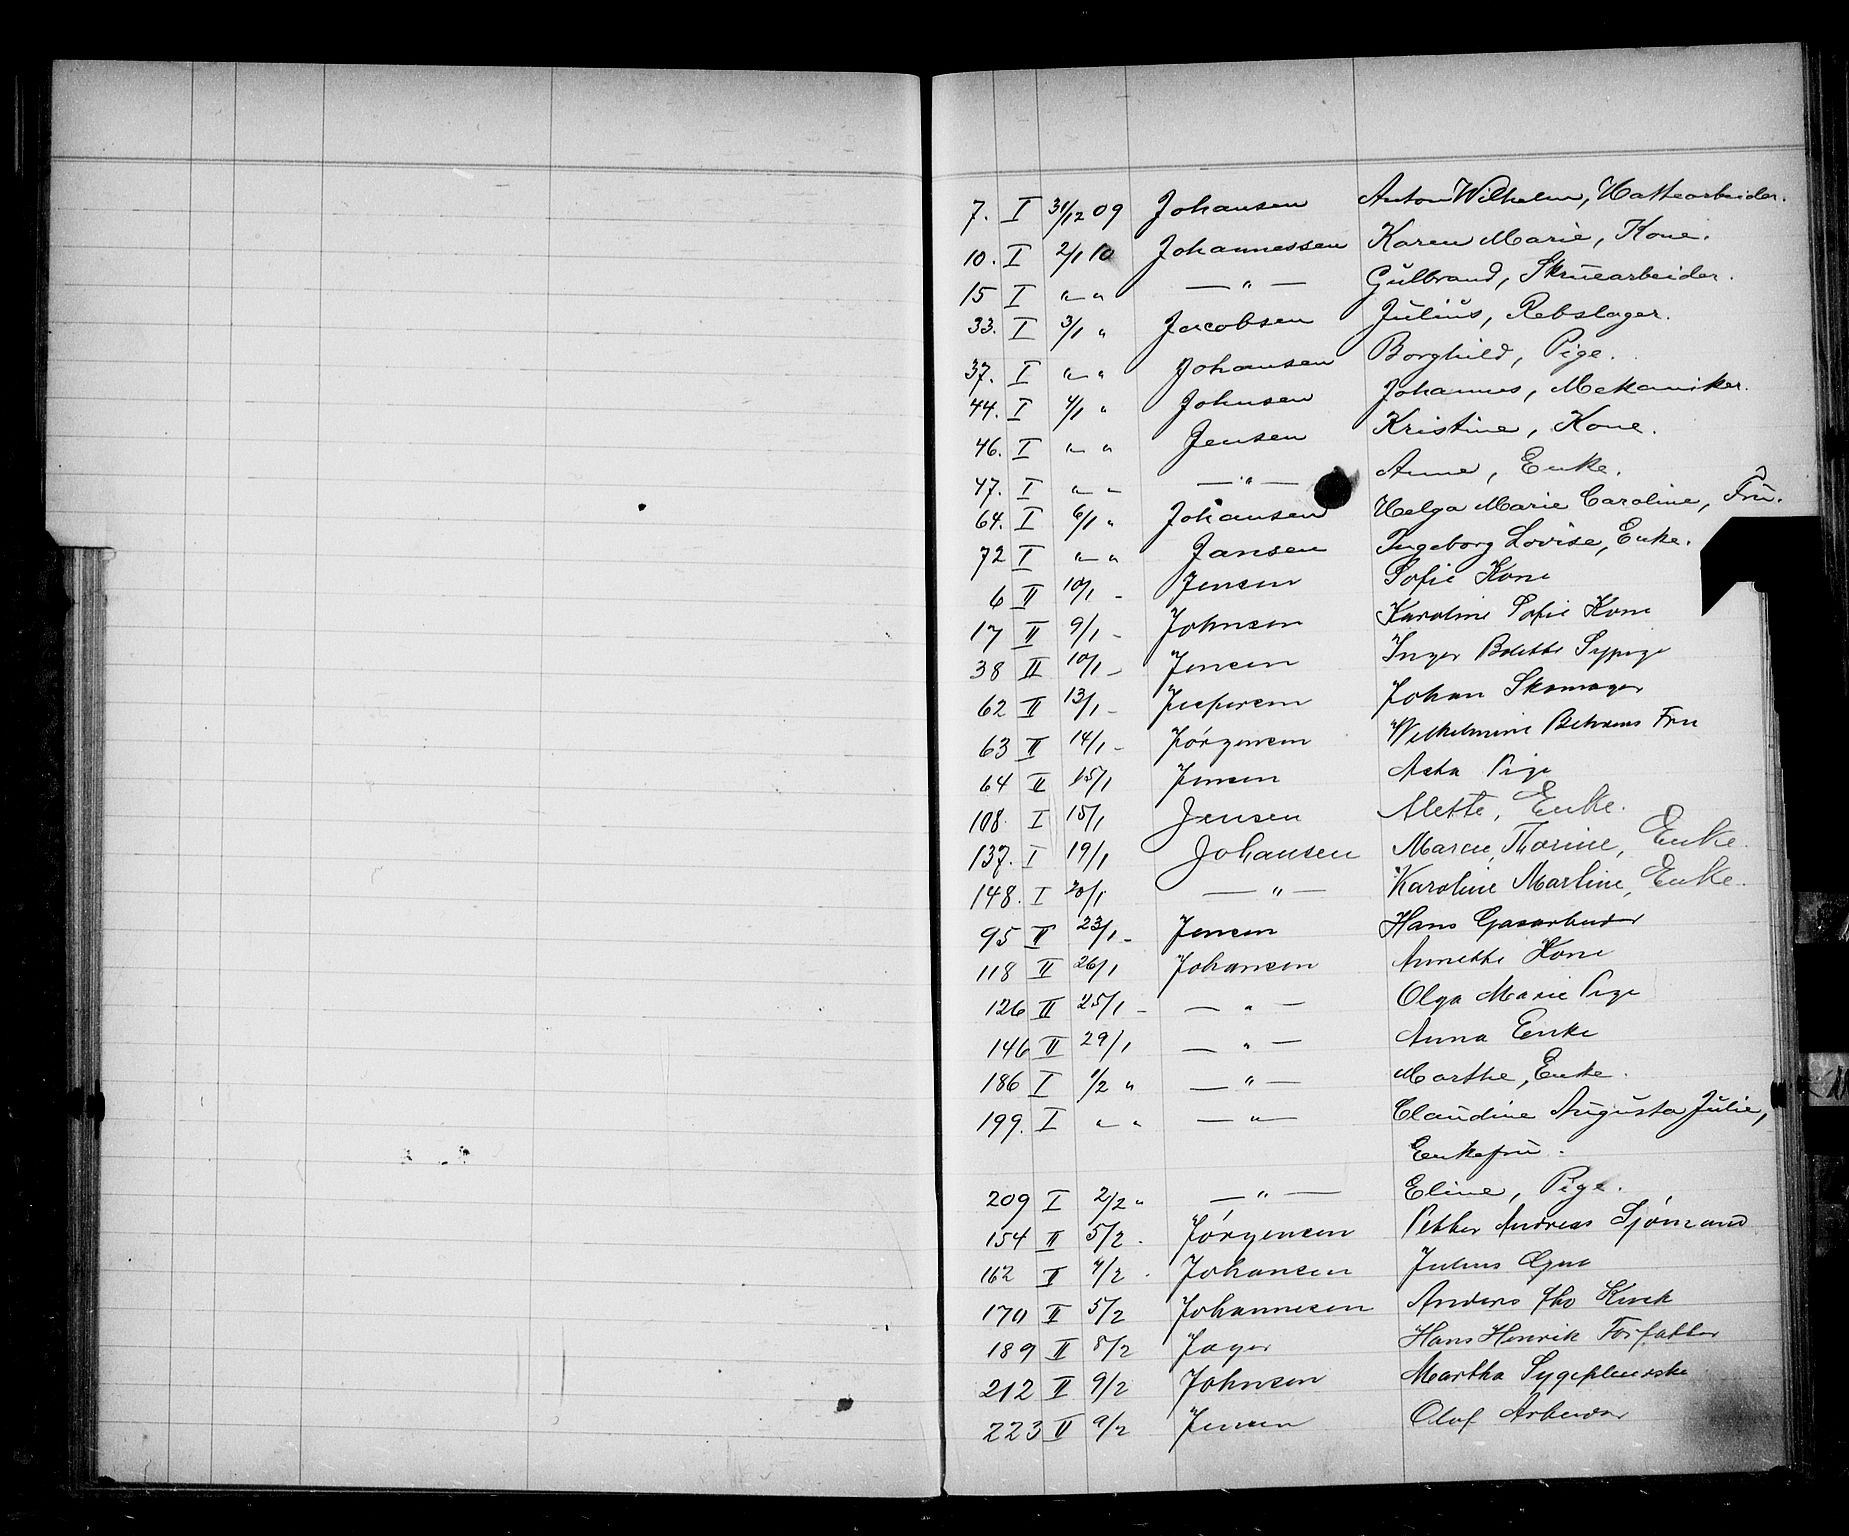 7. I 31/12 09 Johansen Anton Wilhelm, Hattearbeider.
10. I 2/1 10 Johannessen Karen Marie, Kone.
15 I " " — " — Gulbrand, Skruearbeider.
33. I 3/1 " Jacobsen Julius, Rebslager.
37. I " " Johansen Borghild, Pige.
44. I 4/1 " Johnsen Johannes, Mekaniker.
46. I " " Jensen Kristine, Kone.
47. I " " — " — Anne, Enke.
64. I 6/1 " Johansen Helga Marie Caroline, Fru.
72 I " " Jansen Ingeborg Lovise, Enke.
6 II 10/1 - Jensen Sofie Kone
17 II 9/1 - Johnsen Karoline Sofie Kone
38 II 10/1 - Jensen Inger Bolette Sypige
62 II 13/1 - Jespersen Johan Skomager
63 II 14/1 - Jørgensen Wilhelmine Behrens Fru
64 II 15/1 Jensen Asta Pige
108. I 15/1 Jensen Mette, Enke.
137. I 19/1 Johansen Maren, Thorine, Enke.
148. I 20/1 — " — Karoline Martine, Enke.
95 II 23/1 - Jensen Hans Gasarbeider
118 II 26/1 Johansen Annette Kone
126 II 25/1 - — " — Olga Marie Pige
146 II 29/1 — " — Anna Enke
186 I 1/2 " — " — Marthe, Enke.
199. I " " — " — Claudine Augusta Julie,
Enkefru.
209 I 2/2 " — " — Eline, Pige.
154 II 5/2 . Jørgensen Petter Andreas Sjømand
162 I 4/2 . Johansen Julius
170 II 5/2 Johannesen Anders
189 II 8/2 Jæger Hans Henrik Forfatter
212 II 9/2 Johnsen Martha Sygepleierske
223 II 9/2 Jensen Olaf Arbeider